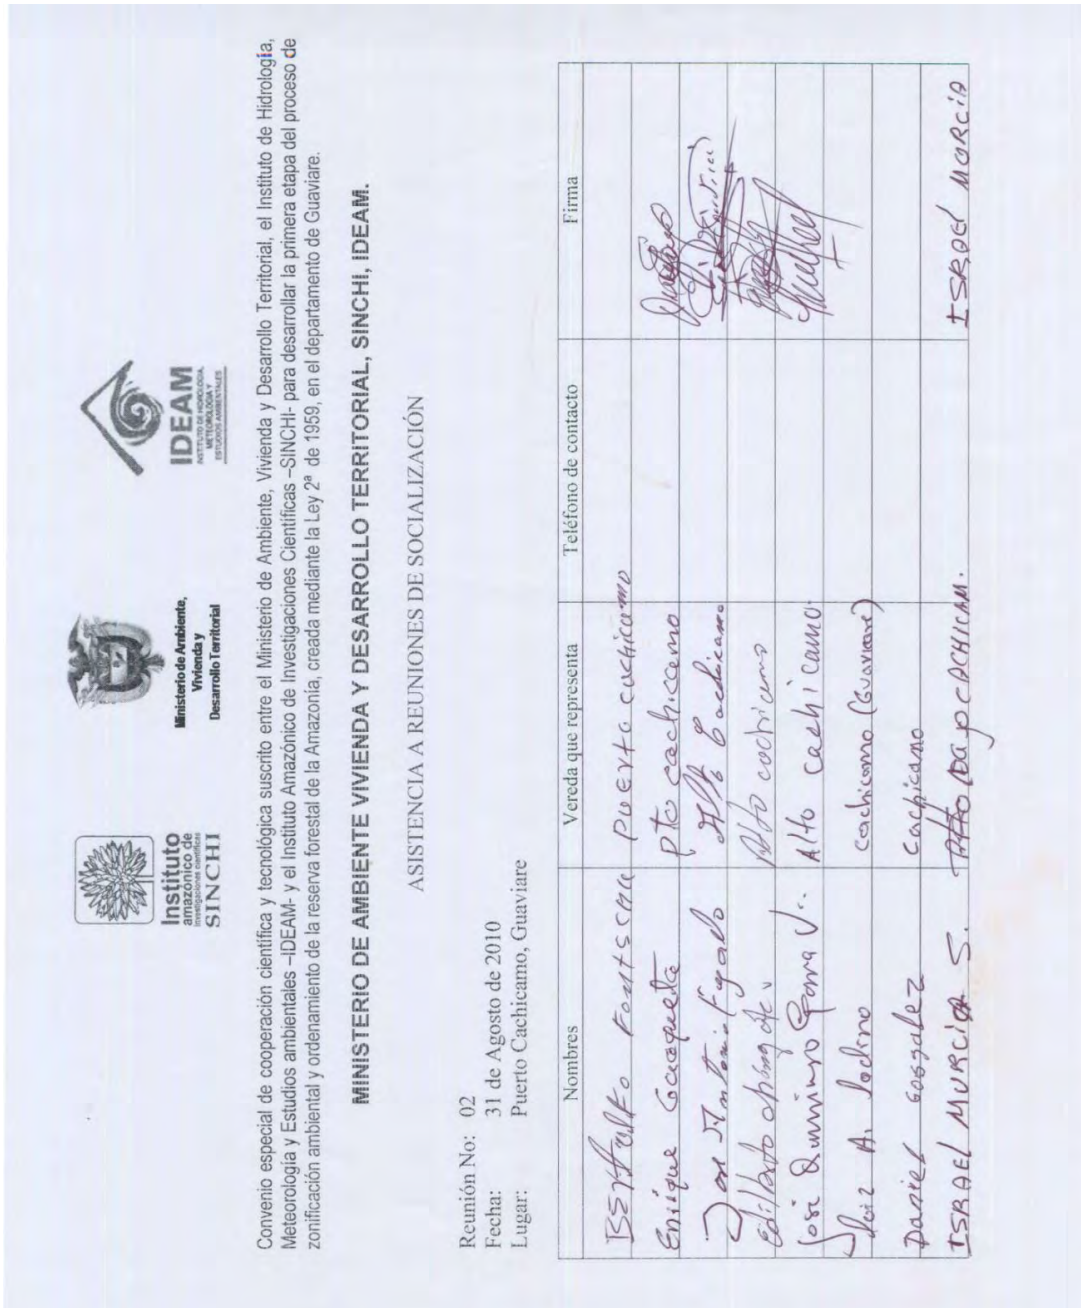 Instituto
amazónico de
investigaciones científicas
SINCHI
Ministerio de Ambiente,
Vivienda y
Desarrollo Territorial
IDEAM
INSTITUTO DE HIDROLOGÍA,
METEOROLOGÍA Y
ESTUDIOS AMBIENTALES
Convenio especial de cooperación científica y tecnológica suscrito entre el Ministerio de Ambiente, Vivienda y Desarrollo Territorial, el Instituto de Hidrología,
Meteorología y Estudios ambientales –IDEAM- y el Instituto Amazónico de Investigaciones Científicas –SINCHI- para desarrollar la primera etapa del proceso de
zonificación ambiental y ordenamiento de la reserva forestal de la Amazonía, creada mediante la Ley 2ª de 1959, en el departamento de Guaviare.
MINISTERIO DE AMBIENTE VIVIENDA Y DESARROLLO TERRITORIAL, SINCHI, IDEAM.
ASISTENCIA A REUNIONES DE SOCIALIZACIÓN
Reunión No: 02
Fecha: 31 de Agosto de 2010
Lugar: Puerto Cachicamo, Guaviare
Nombres Vereda que representa Teléfono de contacto Firma
PUERTO cachicamo
Enrique Pto cachicamo
Jose Antonio Alto Cachicamo
Alto cachicamo
Jose Alto cachicamo.
Luiz A. cachicamo (Guaviare)
Daniel Gosgalez Cachicamo
ISRAEL MURCIA S. CACHICAM. ISRAEL MURCIA